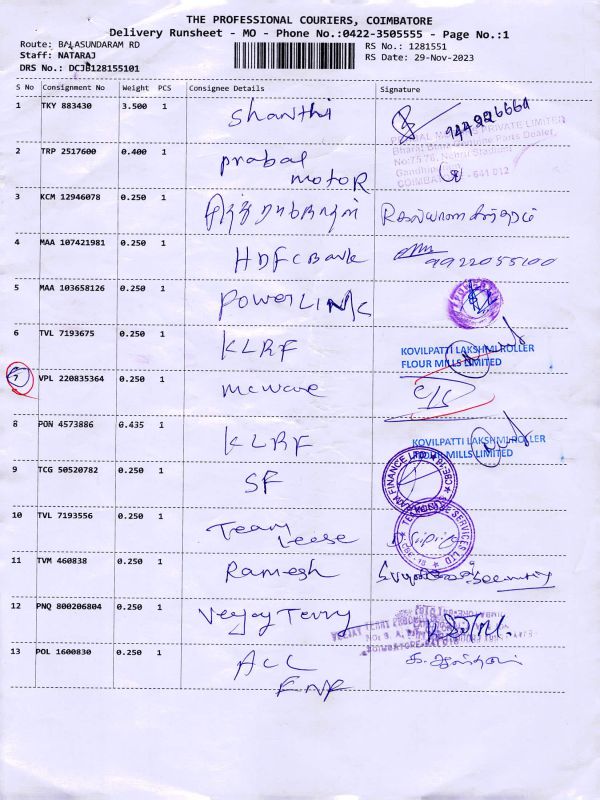 THE PROFESSIONAL COURIERS, COIMBATORE
Delivery Runsheet - MO - Phone No.:0422-3505555 - Page No.:1
Route: BALASUNDARAM RD
RS No.: 1281551
Staff: NATARAJ
RS Date: 29-Nov-2023
DRS No.: DCJB128155101
S No Consignment No Weight PCS Consignee Details Signature
1 TKY 883430 3.500 1 Shanthi
PRIVATE LIMITED
Parts Dealer,
2 TRP 2517600 0.400 1 prabal
motoR
COIMBATORE - 641 012
3 KCM 12946078 0.250 1
4 MAA 107421981 0.250 1 HDFC Bank 9922055100
5 MAA 103658126 0.250 1 POWERLINK
6 TVL 7193675 0.250 1 KLRF
KOVILPATTI LAKSHMI ROLLER
FLOUR MILLS LIMITED
7 VPL 220835364 0.250 1 mcwave
8 PON 4573886 0.435 1 KLRF
KOVILPATTI LAKSHMI ROLLER
FLOUR MILLS LIMITED
9 TCG 50520782 0.250 1 SF
FINANCE LTD
10 TVL 7193556 0.250 1 Team
Leese
SERVICES LTD
11 TVM 460838 0.250 1 Ramesh Security
12 PNQ 800206804 0.250 1 Veejay Terry
13 POL 1600830 0.250 1 ACC
FNF